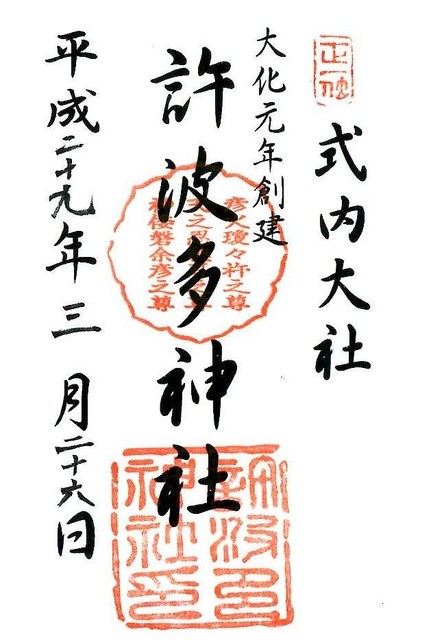 式内大社
大化元年創建
許波多神社
平成二十九年三月二十六日
正一位
彦火瓊々杵之尊
磐余彦之尊
許波多
神社印